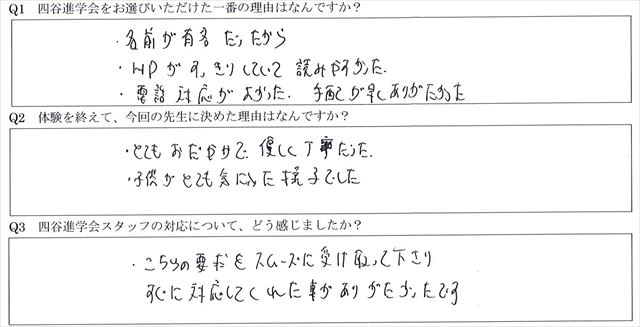 Q1 四谷進学会をお選びいただけた一番の理由はなんですか?
・名前が有名だったから
・HPがすっきりしていて読みやすかった.
・電話対応がよかった. 手配が早くありがたかった
Q2 体験を終えて、今回の先生に決めた理由はなんですか?
・とてもおだやかで優しく丁寧だった.
・子供がとても気に入った様子でした
Q3 四谷進学会スタッフの対応について、どう感じましたか?
・こちらの要求をスムーズに受け取って下さり
すぐに対応してくれた事がありがたかったです